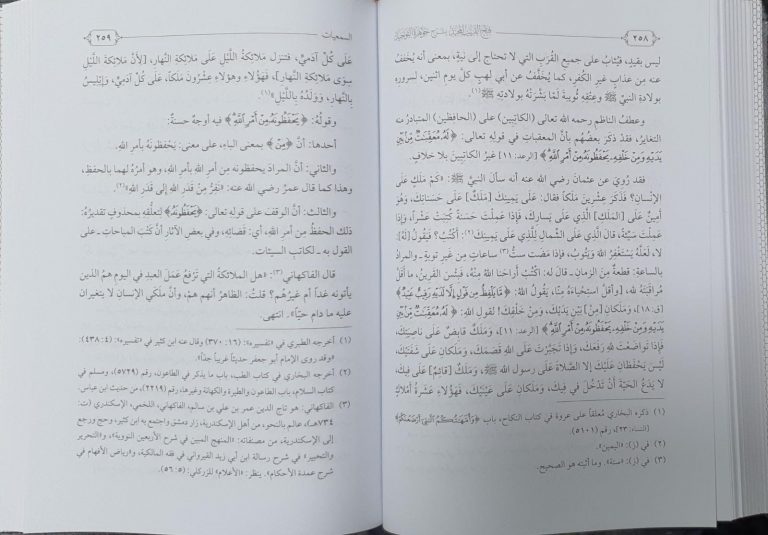 ٢٥٨
فتح القريب المجيد بشرح جوهرة التوحيد
ليس بقيدٍ، فيُثابُ على جميع القُرَبِ التي لا تحتاج إلى نيةٍ، بمعنى أنه يُخفَّفُ
عنه مِن عذابِ غيرِ الكُفرِ، كما يُخفَّفُ عن أبي لهبٍ كلَّ يومِ اثنين، لسرورِهِ
بولادةِ النبيِّ ﷺ وعتقِهِ ثُويبةَ لَمَّا بَشَّرَتْهُ بولادتِهِ ﷺ(١).
وعطفُ الناظم رحمه الله تعالى (الكاتبين) على (الحافظين) المتبادرُ منه
التغايرُ، فقدْ ذكرَ بعضُهُم بأنَّ المعقباتِ في قولِهِ تعالى: ﴿لَهُۥ مُعَقِّبَٰتٌ مِّنۢ بَيۡنِ
يَدَيۡهِ وَمِنۡ خَلۡفِهِۦ يَحۡفَظُونَهُۥ مِنۡ أَمۡرِ ٱللَّهِ﴾ [الرعد:١١] غيرُ الكاتبينَ بلا خلافٍ.
فقد رُويَ عن عثمانَ رضي الله عنه أنه سألَ النبيَّ ﷺ: «كَمْ مَلَكٍ عَلَى
الإِنْسَانِ؟ فَذَكَرَ عِشْرِينَ مَلَكاً فقال: عَلَى يَمِينِكَ [مَلَكٌ] عَلَى حَسَنَاتِكَ، وَهُوَ
أَمِينٌ عَلَى [المَلَكِ] الَّذِي عَلَى يَسَارِكَ، فَإِذَا عَمِلْتَ حَسَنَةً كُتِبَتْ عَشْراً، وَإِذَا
عَمِلْتَ سَيِّئَةً، قَالَ الَّذِي عَلَى الشِّمَالِ لِلَّذِي عَلَى يَمِينِكَ(٢): أَكْتُبُ؟ فَيَقُولُ [لَهُ]:
لَا، لَعَلَّهُ يَسْتَغْفِرُ اللهَ وَيَتُوبُ، فَإِذَا مَضَت ستُّ(٣) ساعاتٍ مِن غيرِ توبةٍ ـ والمرادُ
بالساعةِ: قطعةٌ مِنَ الزمانِ ـ قال له: اكْتُبْ أَرَاحَنَا اللهُ مِنْهُ، فَبِئْسَ القَرِينُ، مَا أَقَلَّ
مُرَاقَبَتَهُ للهِ، وَأَقَلَّ اسْتِحْيَاءَهُ مِنَّا، يَقُولُ اللهُ: ﴿مَّا يَلۡفِظُ مِن قَوۡلٍ إِلَّا لَدَيۡهِ رَقِيبٌ عَتِيدٌ﴾
[ق:١٨]، وَمَلَكَانِ [مِنْ] بَيْنِ يَدَيْكَ، وَمِنْ خَلْفِكَ؛ لقول الله: ﴿لَهُۥ مُعَقِّبَٰتٌ مِّنۢ بَيۡنِ
يَدَيۡهِ وَمِنۡ خَلۡفِهِۦ يَحۡفَظُونَهُۥ مِنۡ أَمۡرِ ٱللَّهِ﴾ [الرعد:١١]، وَمَلَكٌ قَابِضٌ عَلَى نَاصِيَتِكَ،
فَإِذَا تَوَاضَعْتَ للهِ رَفَعَكَ، وَإِذَا تَجَبَّرْتَ عَلَى اللهِ قَصَمَكَ، وَمَلَكَانِ عَلَى شَفَتَيْكَ
لَيْسَ يَحْفَظَانِ عَلَيْكَ إِلَّا الصَّلَاةَ عَلَى رسول الله ﷺ، وَمَلَكٌ [قَائِمٌ] عَلَى فِيكَ،
لَا يَدَعُ الحَيَّةَ أَنْ تَدْخُلَ فِي فِيكَ، وَمَلَكَانِ عَلَى عَيْنَيْكَ، فَهَؤُلَاءِ عَشَرَةُ أَمْلَاكٍ
(١) ذكره البخاري مُعلقاً على عروة في كتاب النكاح، باب ﴿وَأُمَّهَٰتُكُمُ ٱلَّٰتِيٓ أَرۡضَعۡنَكُمۡ﴾
[النساء:٢٣]، رقم (٥١٠١).
(٢) في (ز): «اليمين».
(٣) في (ز): «سنة». وما أثبته هو الصحيح.
السمعيات
٢٥٩
عَلَى كُلِّ آدَمِيٍّ، فَتنزل مَلَائِكَةُ اللَّيْلِ عَلَى مَلَائِكَةِ النَّهَارِ، [لأَنَّ مَلَائِكَةَ اللَّيْلِ
سِوَى مَلَائِكَةِ النَّهارِ]، فَهَؤُلاء وهؤلاء عِشْرُونَ مَلَكاً، عَلَى كُلِّ آدَمِيٍّ، وَإِبْلِيسُ
بِالنَّهَارِ، وَوَلَدُهُ بِاللَّيْلِ»(١).
وقولُهُ: ﴿يَحۡفَظُونَهُۥ مِنۡ أَمۡرِ ٱللَّهِ﴾ فيه أوجهٌ حسنةٌ:
أحدها: أنَّ ﴿مِنۡ﴾ بمعنى الباءِ، على معنى: يَحْفظونَهُ بأمرِ اللهِ.
والثاني: أنَّ المرادَ يحفظونه من أمرِ اللهِ بأمرِ اللهِ، وهو أمرُهُ لهما بالحفظِ،
وهذا كما قال عمرُ رضي الله عنه: «نَفِرُّ مِنْ قَدَرِ اللهِ إِلَى قَدَرِ اللهِ»(٢).
والثالث: أنَّ الوقفَ على قولِهِ تعالى: ﴿يَحۡفَظُونَهُۥ﴾ لِتعلُّقِهِ بمحذوفٍ تقديرُهُ:
ذلك الحفظُ مِن أمرِ الله، أي: قضائِهِ، وفي بعض الآثارِ أنَّ كَتْبَ المباحاتِ ـ على
القولِ به ـ لكاتبِ السيئاتِ.
قال الفاكهاني(٣): «هلِ الملائكةُ التي تَرْفعُ عَمَلَ العبدِ في اليومِ همُ الذين
يأتونه غداً أم غيرُهُم؟ قلتُ: الظاهرُ أنهم همْ، وأنَّ ملَكَي الإنسانِ لا يتغيرانِ
عليه ما دامَ حيّاً». انتهى.
(١) أخرجه الطبري في «تفسيره» (١٦: ٣٧٠) وقال عنه ابن كثير في «تفسيره» (٤: ٤٣٨):
«وقد روى الإمام أبو جعفر حديثاً غريباً جداً».
(٢) أخرجه البخاري في كتاب الطب، باب ما يذكر في الطاعون، رقم (٥٧٢٩)، ومسلم في
كتاب السلام، باب الطاعون والطيرة والكهانة وغيرها، رقم (٢٢١٩)، من حديث ابن عباس.
(٣) الفاكهاني: هو تاج الدين عمر بن علي بن سالم، الفاكهاني، اللخمي، الإسكندري (ت:
٧٣٤هـ)، عالم بالنحو، من أهل الإسكندرية، زار دمشق واجتمع به ابن كثير، وحج ورجع
إلى الإسكندرية، من مصنفاته: «المنهج المبين في شرح الأربعين النووية»، و«التحرير
والتحبير» في شرح رسالة ابن أبي زيد القيرواني في فقه المالكية، و«رياض الأفهام في
شرح عمدة الأحكام». ينظر: «الأعلام» للزركلي (٥: ٥٦).